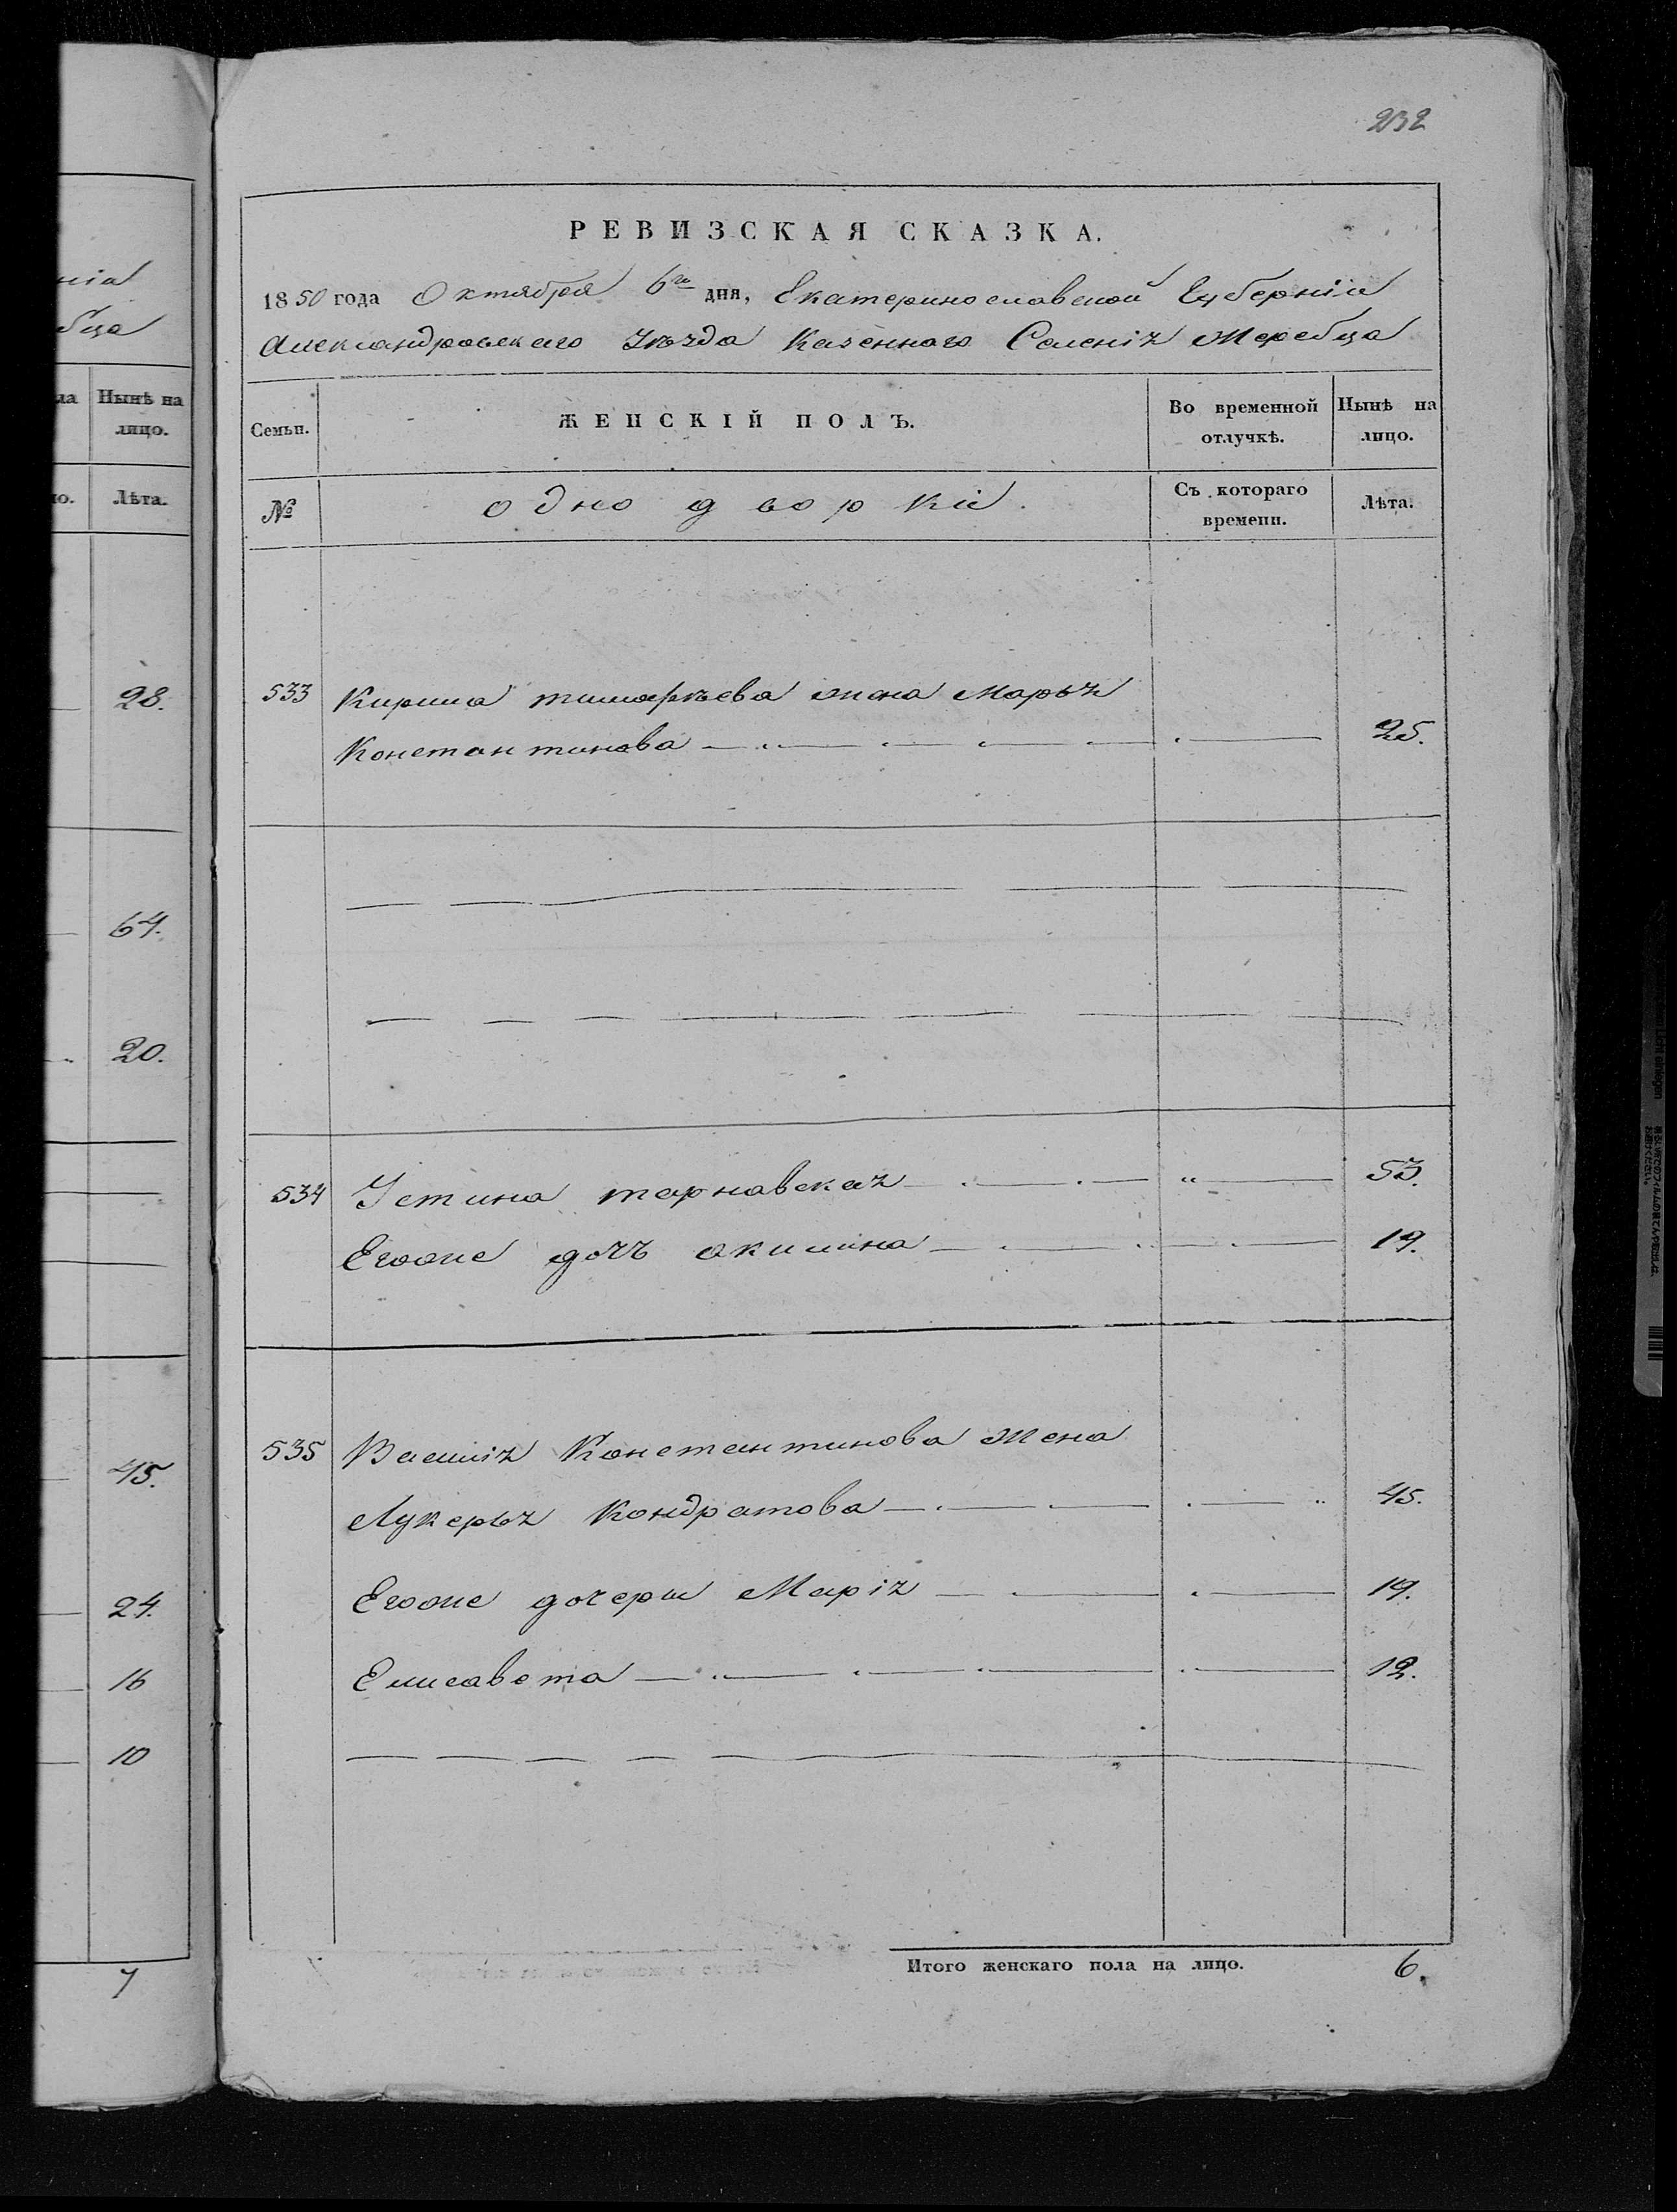 232
РЕВИЗСКАЯ СКАЗКА.
1850 года Октября 6го дня, Екатеринославской Губерніи
Александровскаго Уѣзда Казеннаго Селенія Жеребца
нія
бца
Семьи.
ЖЕНСКІЙ ПОЛЪ.
Во временной отлучкѣ.
Нынѣ на лицо.
ла
Нынѣ на
лицо.
№
одно дворки.
Съ котораго времени.
Лѣта.
ю.
Лѣта.
533 Кирила тимофѣева жена Марья
Константинова 25.
534 Устина тарнавская 53.
Егоже дочь акилина 19.
535 Василія Константинова жена
Лукерья Кондратова 45.
Егоже дочери Марія 19.
Елисавета 12.
Итого женскаго пола на лицо. 6.
28.
64.
20.
45.
24.
16
10
7